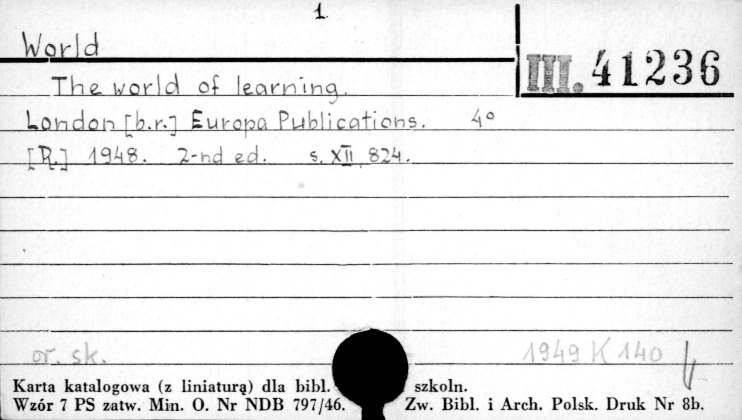 1.
World
III. 41236
The world of learning.
London [b.r.] Europa Publications. 4°
[R.] 1948. 2-nd ed. s. XII, 824.
or. sk. 1949 K 140
Karta katalogowa (z liniaturą) dla bibl. szkoln.
Wzór 7 PS zatw. Min. O. Nr NDB 797/46. Zw. Bibl. i Arch. Polsk. Druk Nr 8b.